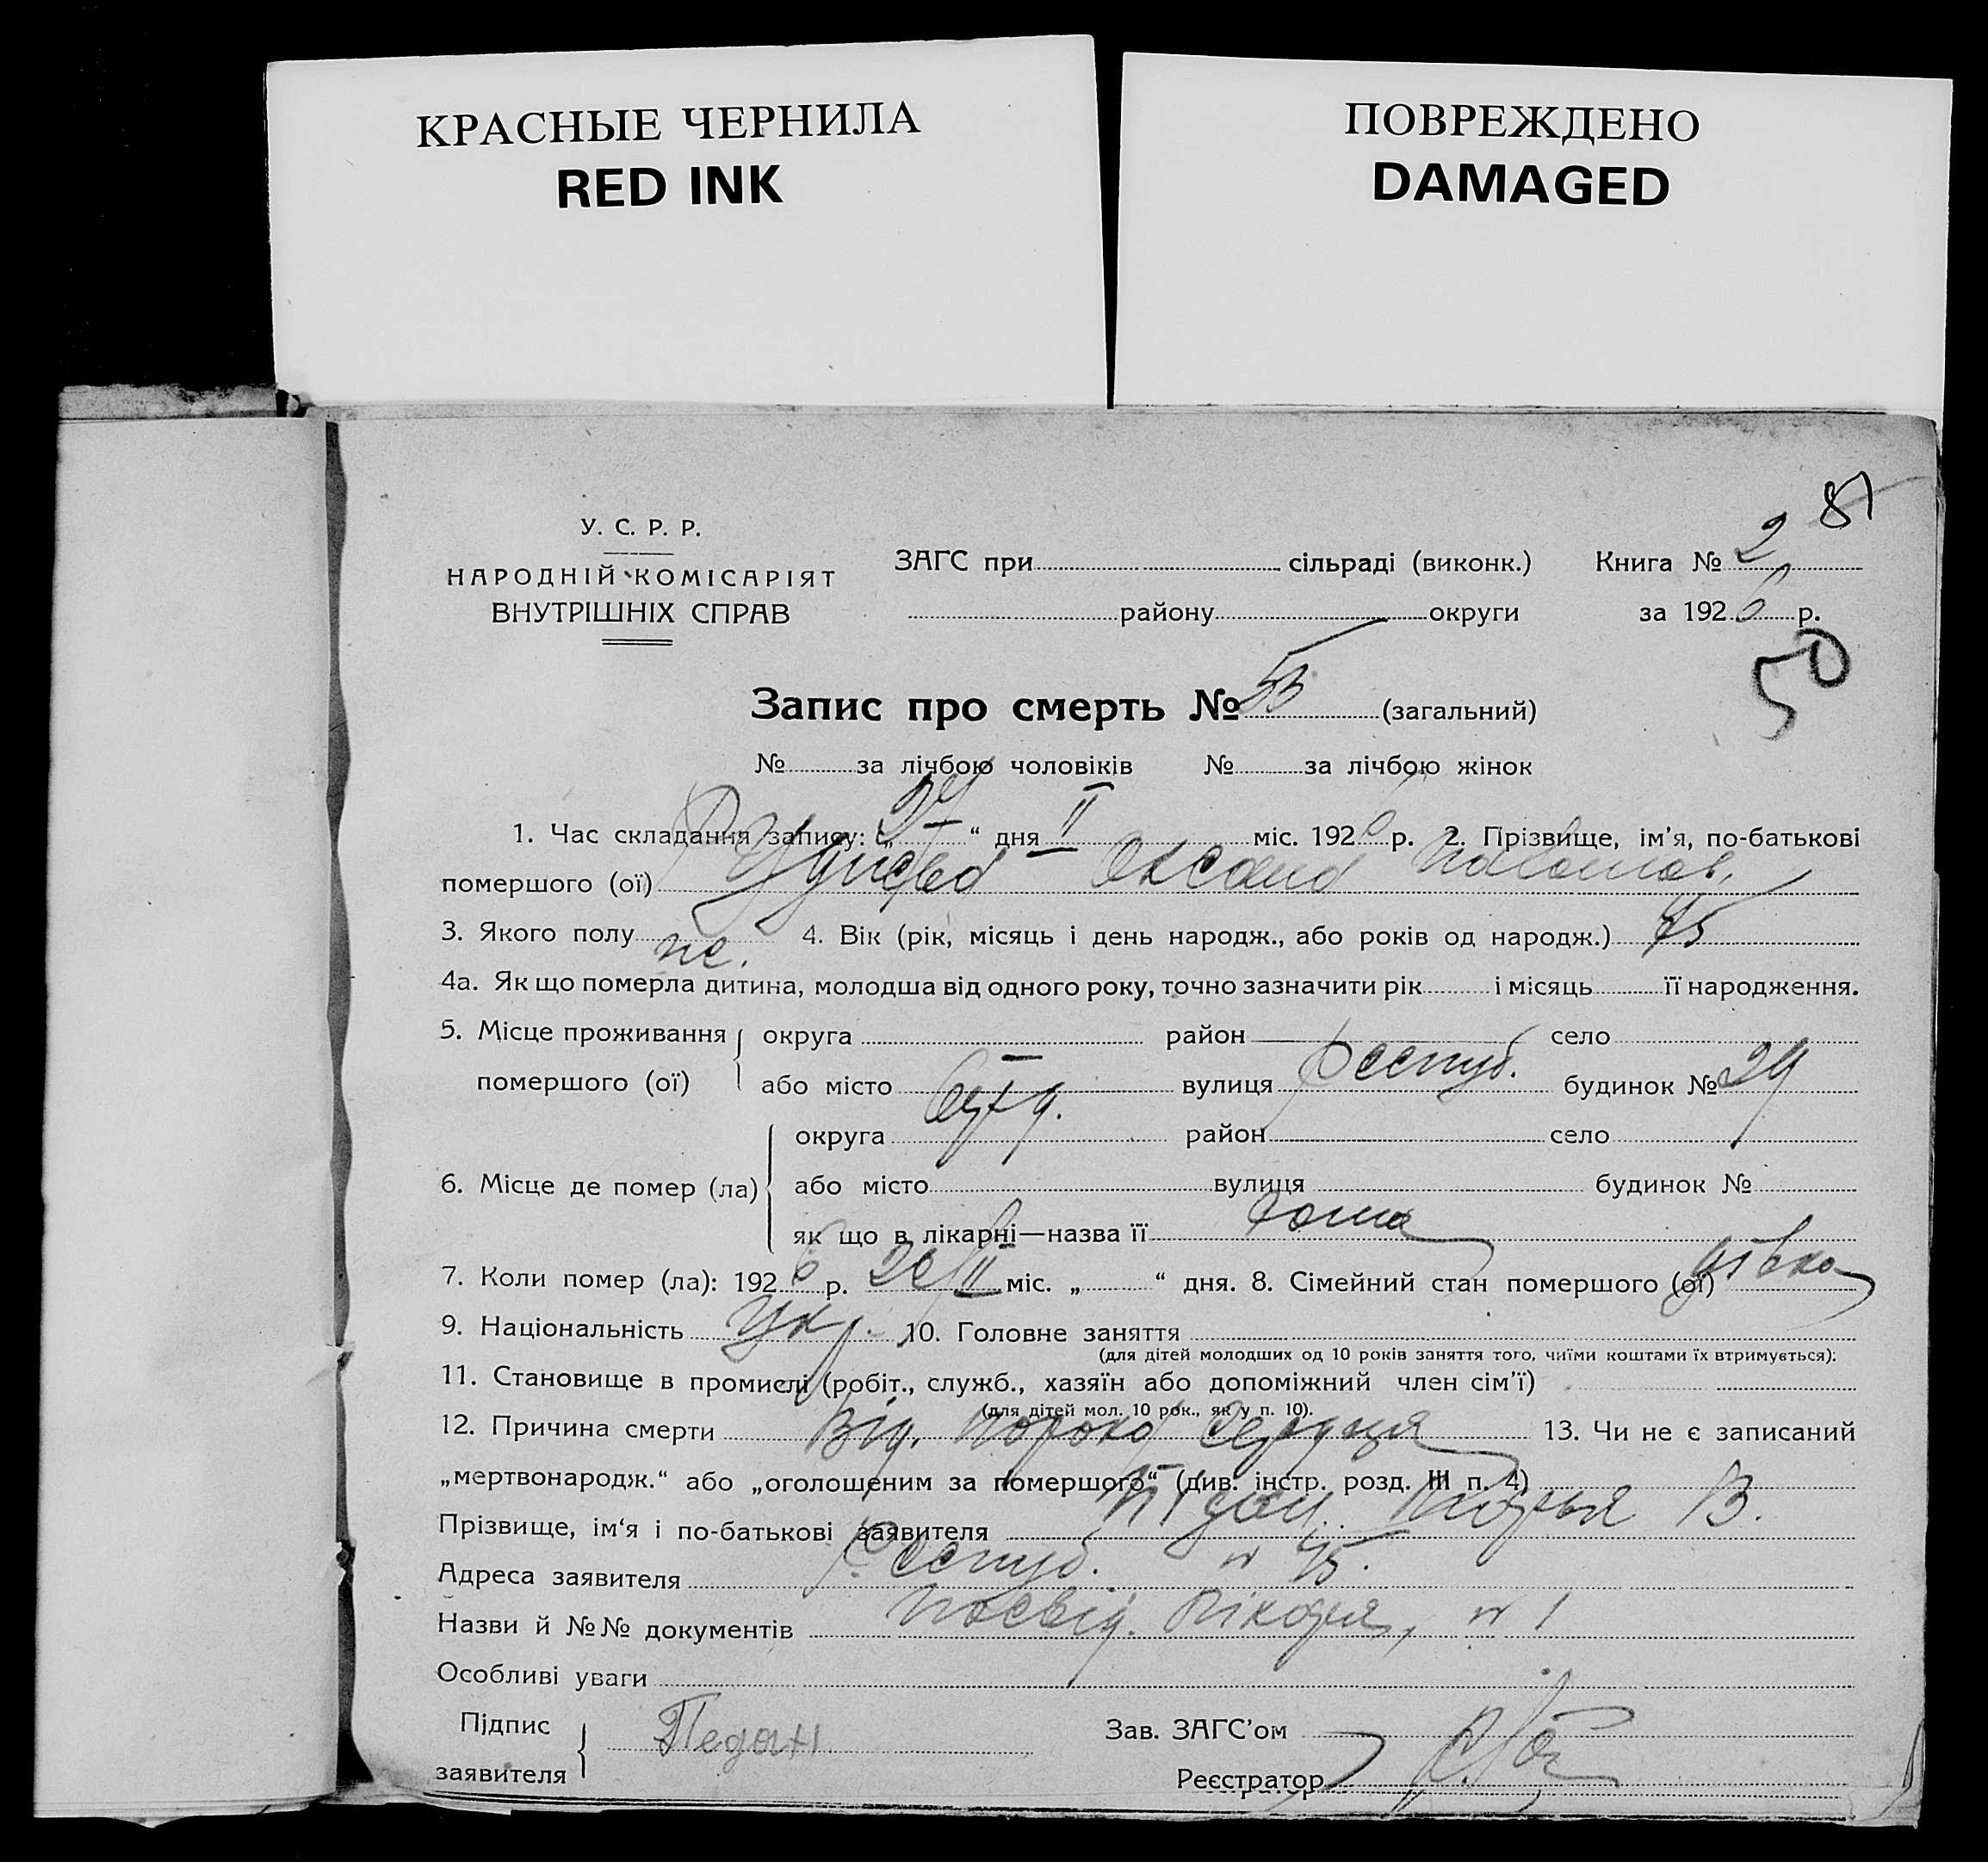 КРАСНЫЕ ЧЕРНИЛА
RED INK
ПОВРЕЖДЕНО
DAMAGED
81
У. С. Р. Р.
НАРОДНІЙ КОМІСАРІЯТ
ВНУТРІШНІХ СПРАВ
ЗАГС при сільраді (виконк.) Книга № 2
району округи за 1926 р.
50
Запис про смерть № (загальний)
№ за лічбою чоловіків № за лічбою жінок
1. Час складання запису: „ “ дня II міс. 1926 р. 2. Прізвище, ім’я, по-батькові
помершого (ої) Оксана
3. Якого полу 4. Вік (рік, місяць і день народж., або років од народж.) 75
4а. Як що померла дитина, молодша від одного року, точно зазначити рік і місяць її народження.
5. Місце проживання округа район село
помершого (ої) або місто вулиця Респуб. будинок № 29
округа район село
6. Місце де помер (ла) або місто вулиця будинок №
як що в лікарні—назва її дома
7. Коли помер (ла): 1926 р. 26/II міс. „ “ дня. 8. Сімейний стан помершого (ої)
9. Національність Укр. 10. Головне заняття
(для дітей молодших од 10 років заняття того, чиїми коштами їх втримується);
11. Становище в промислі (робіт., служб., хазяїн або допоміжний член сім’ї)
(для дітей мол. 10 рок., як у п. 10).
12. Причина смерти Від. порока сердця 13. Чи не є записаний
„мертвонародж.“ або „оголошеним за помершого“ (див. інстр. розд. III п. 4)
Прізвище, ім‘я і по-батькові заявителя В.
Адреса заявителя Респуб. № 75.
Назви й №№ документів Посвід. Лікаря, № 1
Особливі уваги
Підпис Зав. ЗАГС’ом
заявителя Педан
Реєстратор